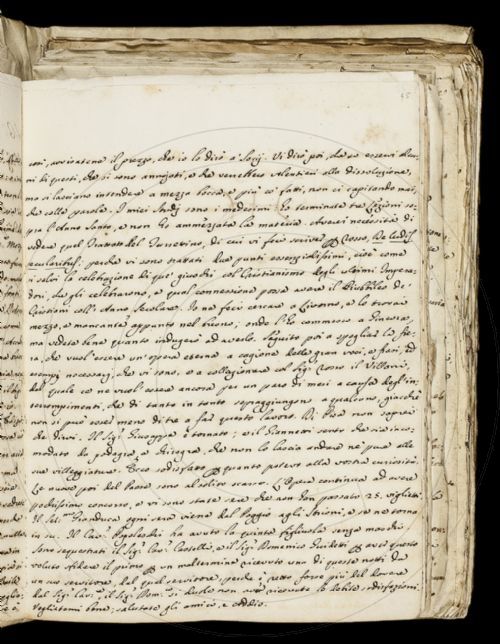 cosi, avvisatene il prezzo, che io lo dirò a Socij. Vi dirò poi, che ve esservi alcu-
ni di questi, che si sono annojati, e che verrebbero volentieri alla dissoluzione,
ma si lasciano intendere a mezza bocca, e più co' fatti, non ci capitando mai,
che colle parole. I miei studj sono i medesimi. Ho terminate tre Lezioni so-
pra l'Anno Santo, e non ho ammezzata la materia. Averei necessità di
vedere quel Trattato del Turretino, di cui vi feci scrivere
De Ludis
secularibus, perché vi sono trattati due punti essenzialissimi, cioè come
si salvi la celebrazione di que' giuochi col Cristianesimo degli ultimi Impera-
dori, che gli celebrarono, e qual connessione possa avere il Giubbileo de'
Cristiani coll' Anno Secolare. Io ne feci cercare a Livorno, e lo trovai
mezzo, e mancante appunto nel buono; onde l'ho commesso a Ginevra,
ma vedete bene quanto indugerò ad averlo. Seguito poi a spogliar la
che vuol essere un' opera eterna a cagione delle gran voci, e frasi, ed
esempj necessarj, che vi sono, e a collazionare col Sig.r Rosso il Villani,
del quale ce ne vuol essere ancora per un paro di mesi a causa degl' in-
terrompimenti, che di tanto in tanto sopraggiungono a qualcuno, giacchè
non si può esser meno di tre a far questo lavoro. Di Pisa non saprei
che dirvi. Il Sig.r Giuseppe è tornato; e il Giannetti sento che sia inco-
modato da podagra, e chiragra, che non lo lascia andare né pure alle
sue villeggiature. Ecco sodisfatto quanto potevo alla vostra curiosità.
Le nuove poi del Paese sono al solito scarse. L'Opera continua ad avere
pochissimo concorso, e vi sono state sere che non han passato 25. viglietti.
Il Ser. Gianduca ogni sera viene dal Poggio agli Strioni, e se ne torna
in su. Il Cav. ha avuto la quinta figliuola senza maschi.
Sono sequestrati il Sig.r Cav. Castelli, e il Sig.r Domenico Guidetti avere questo
voluto sfidare il primo un maltermine ricevuto una di queste notti da
un suo servitore, dal qual servitore, perchè è reso forse più del dovere
dal Sig.r Cav. il Sig.r Dom.co si duole non aver ricevute le debite sodisfazioni.
Vogliatemi bene, salutate gli amici, e Addio.